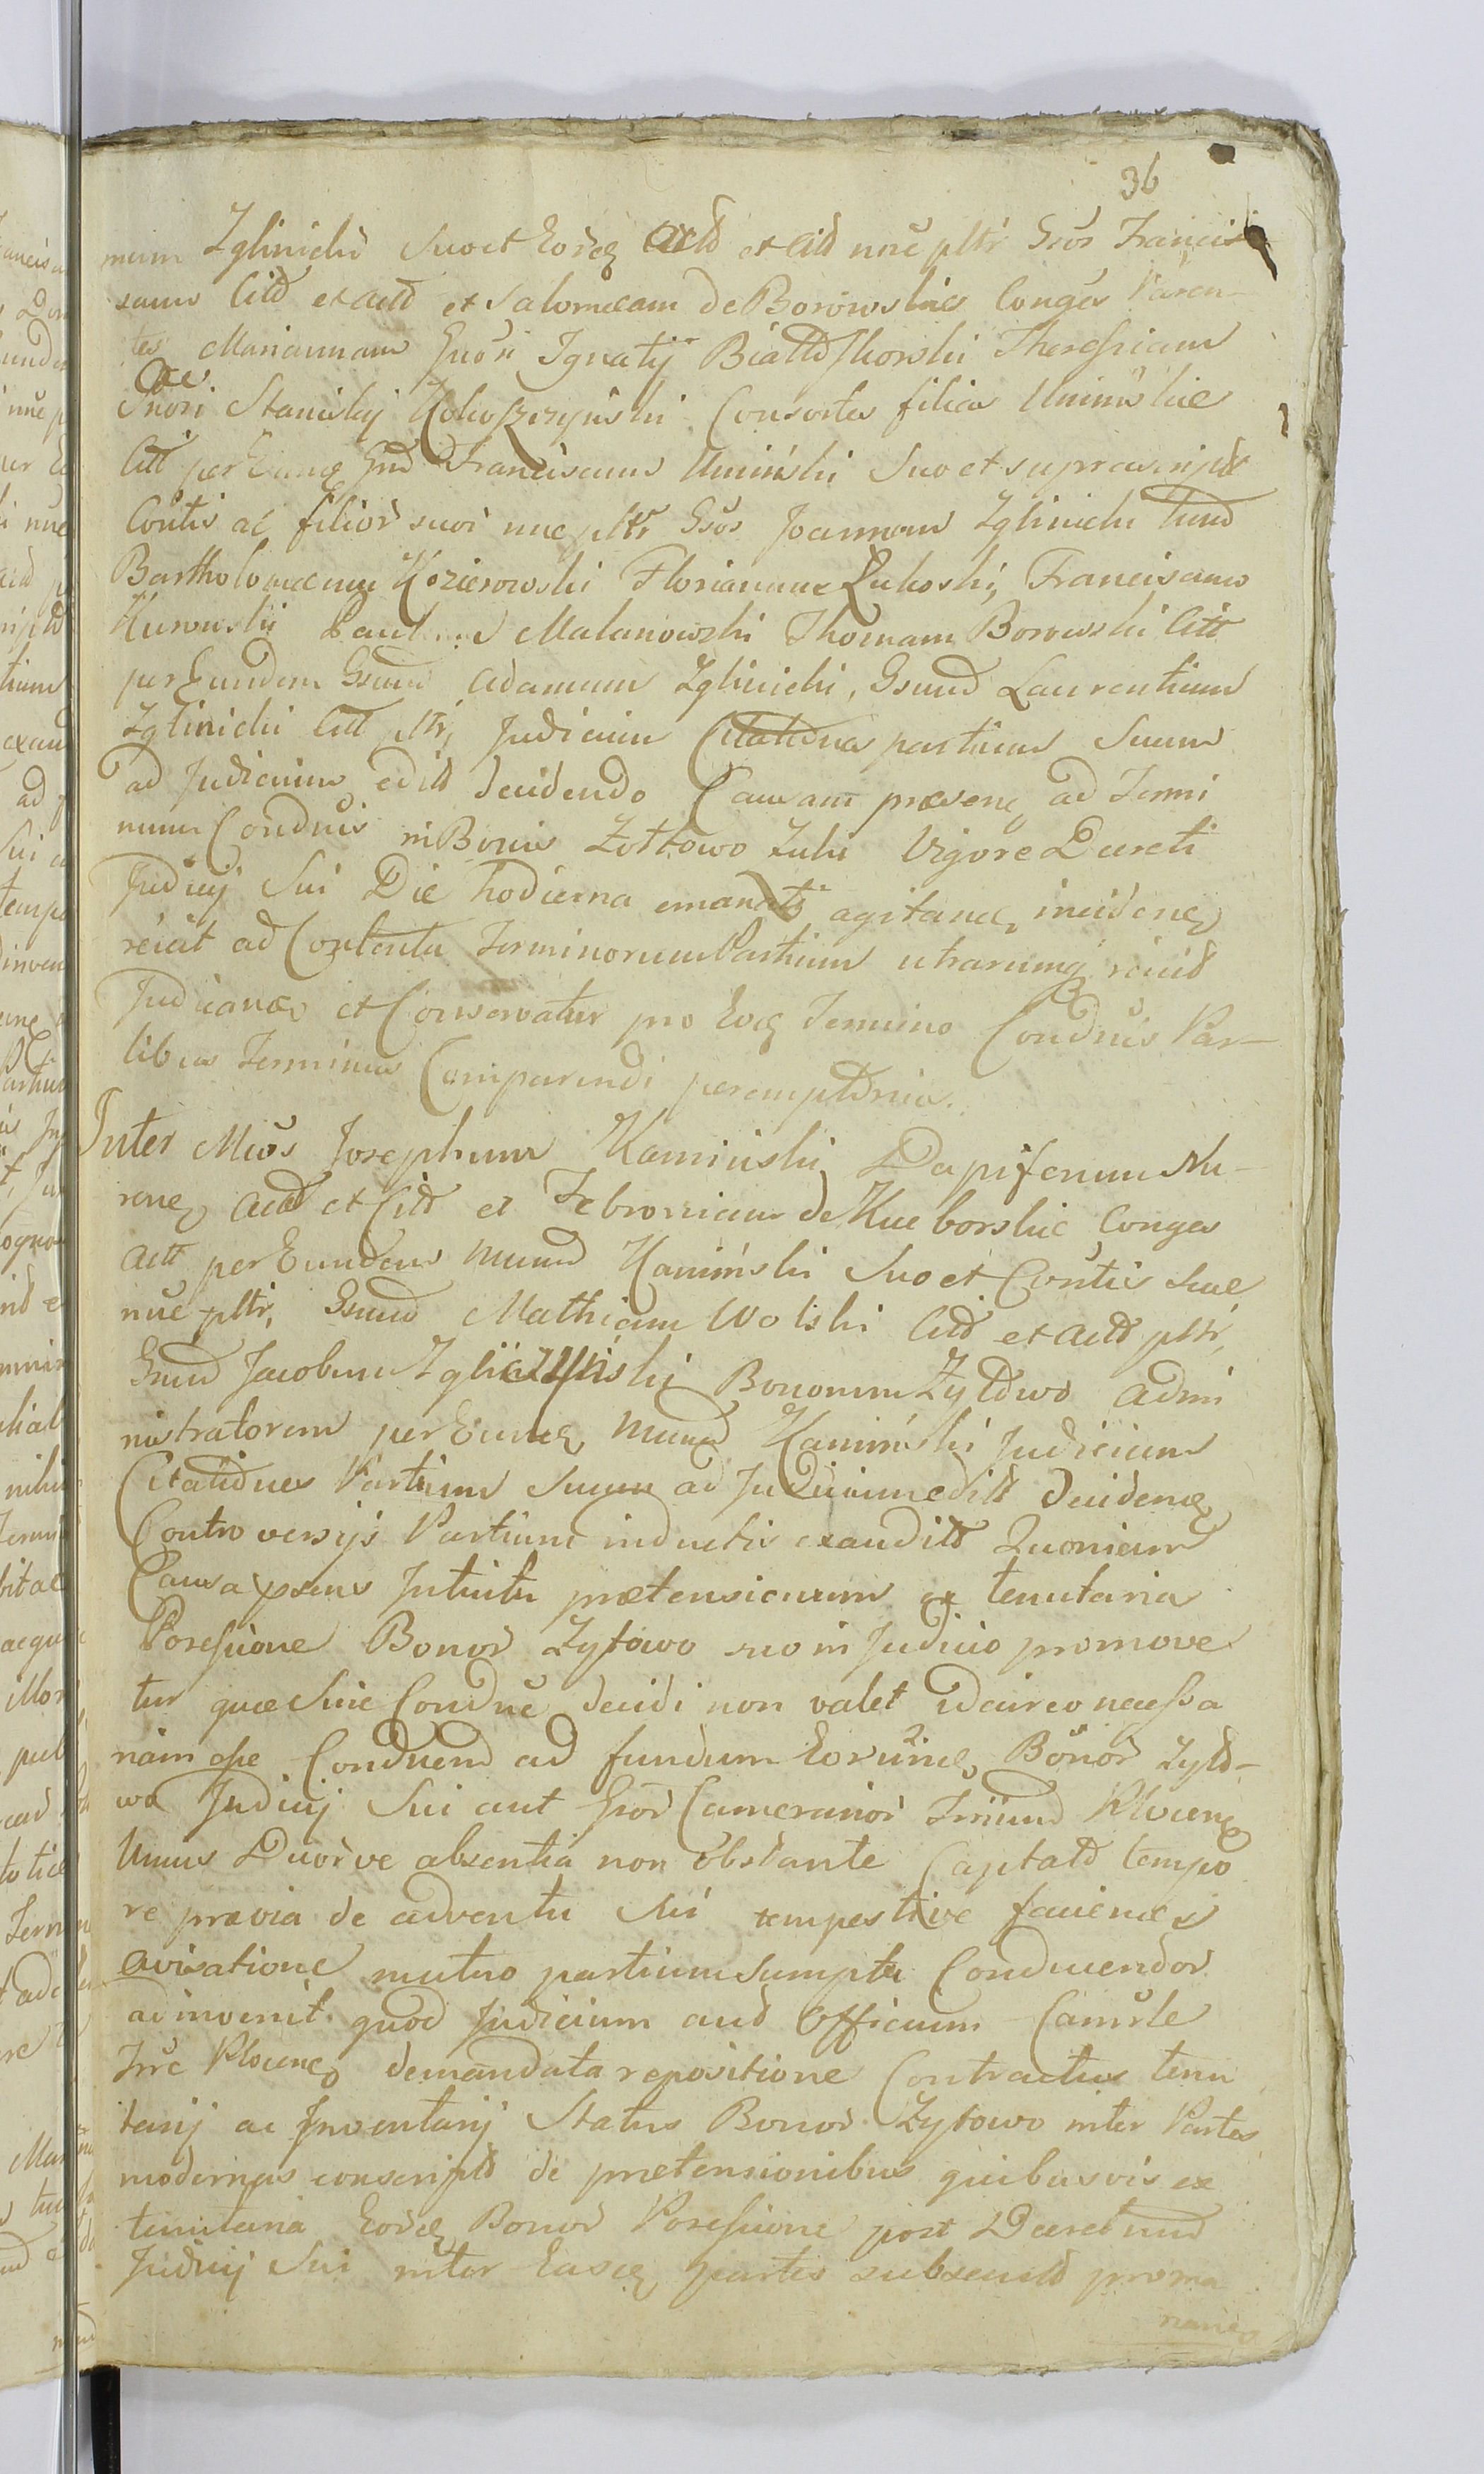 36
mum Zglinicki Suo et Eorq actt et citt nṁe pltr Gsos Francis
cum Citt et actt et Salomeam de Borowskie Conges Paren-
tes Mariannam Gnosi Ignatij Białłoskorski Theressiam
ac
Gnosi Stanislaj Kokoszczynski Consortes filias Uminskie
Citt per Eunq Gnd Franciscum Uminski Suo et suprascriptt
Contis ac filior suor nne pltr Gsos Joannem Zglinicki tund
Bartholomaeum Kozierowski Florianum Lukoski, Franciscum
Kurowski Malanowski Thomam Borowski Citt
per Eundem Gsund Adamum Zglinicki, Gsund Laurentium
Zglinicki Citt pltr, Judicium Citationes partium Suum
ad Judicium editt decidendo Causam praesenq ad Termi
num Conducis in Bonis Żółtowo Zuki Vigore Decreti
Judicij Sui Die hodierna emanatt agitanq, incidenq
reicit ad Contenta Terminorum Partium utrarumq reicid
Judicanq et Conservatur pro Eoq Termino Conducis Par-
tibus Terminus Comparendi peremptorius.
Inter Mcos Josephum Kaminski Dapiferum Nu-
renq actt et Citt et Febroniam de Kueborskie Conges
actt per Eundem Mcund Kamiński Suo et Contis Suae
nne pltr, Gsund Mathiam Wolski Citt et actt pltr,
Gsund Jacobum Zgliczynski Bonorum Zytowo admi
nistratorem per Eunq Mcund Kamiński Judicium
Citationes Partium Suum ad Judicium editt decidenq
Controversijs Partium inductis exauditt Quoniam
Causa psens Intuitu praetensionum ex tenutaria
Possessione Bonor Zytowo suo in Judicio promove
tur quae Sine Conducē decidi non valet idcirco necessa
riam esse Conducend ad fundum Eorunq Bonor Zyto-
wo Judicij Sui aut Gsor Camerarior Terrund Plocenq
Unius Duorve absentia non obstante Captatt tempo
re praevia de adventu Sui tempestive faciendq
avisatione mutuo partium sumptu Conducendor
adinvenit. quod Judicium aud Officium Camrle
Trre Plocenq demandata repositione Contractus tenu
tarij ac Inventarij Status Bonor Zytowo inter Partes
modernas conscriptt de praetensionibus quibusvis ex
tenutaria Eorq Bonor Possessione post Decretum
Judicij Sui inter Easq partes subsecutt proma
nanq